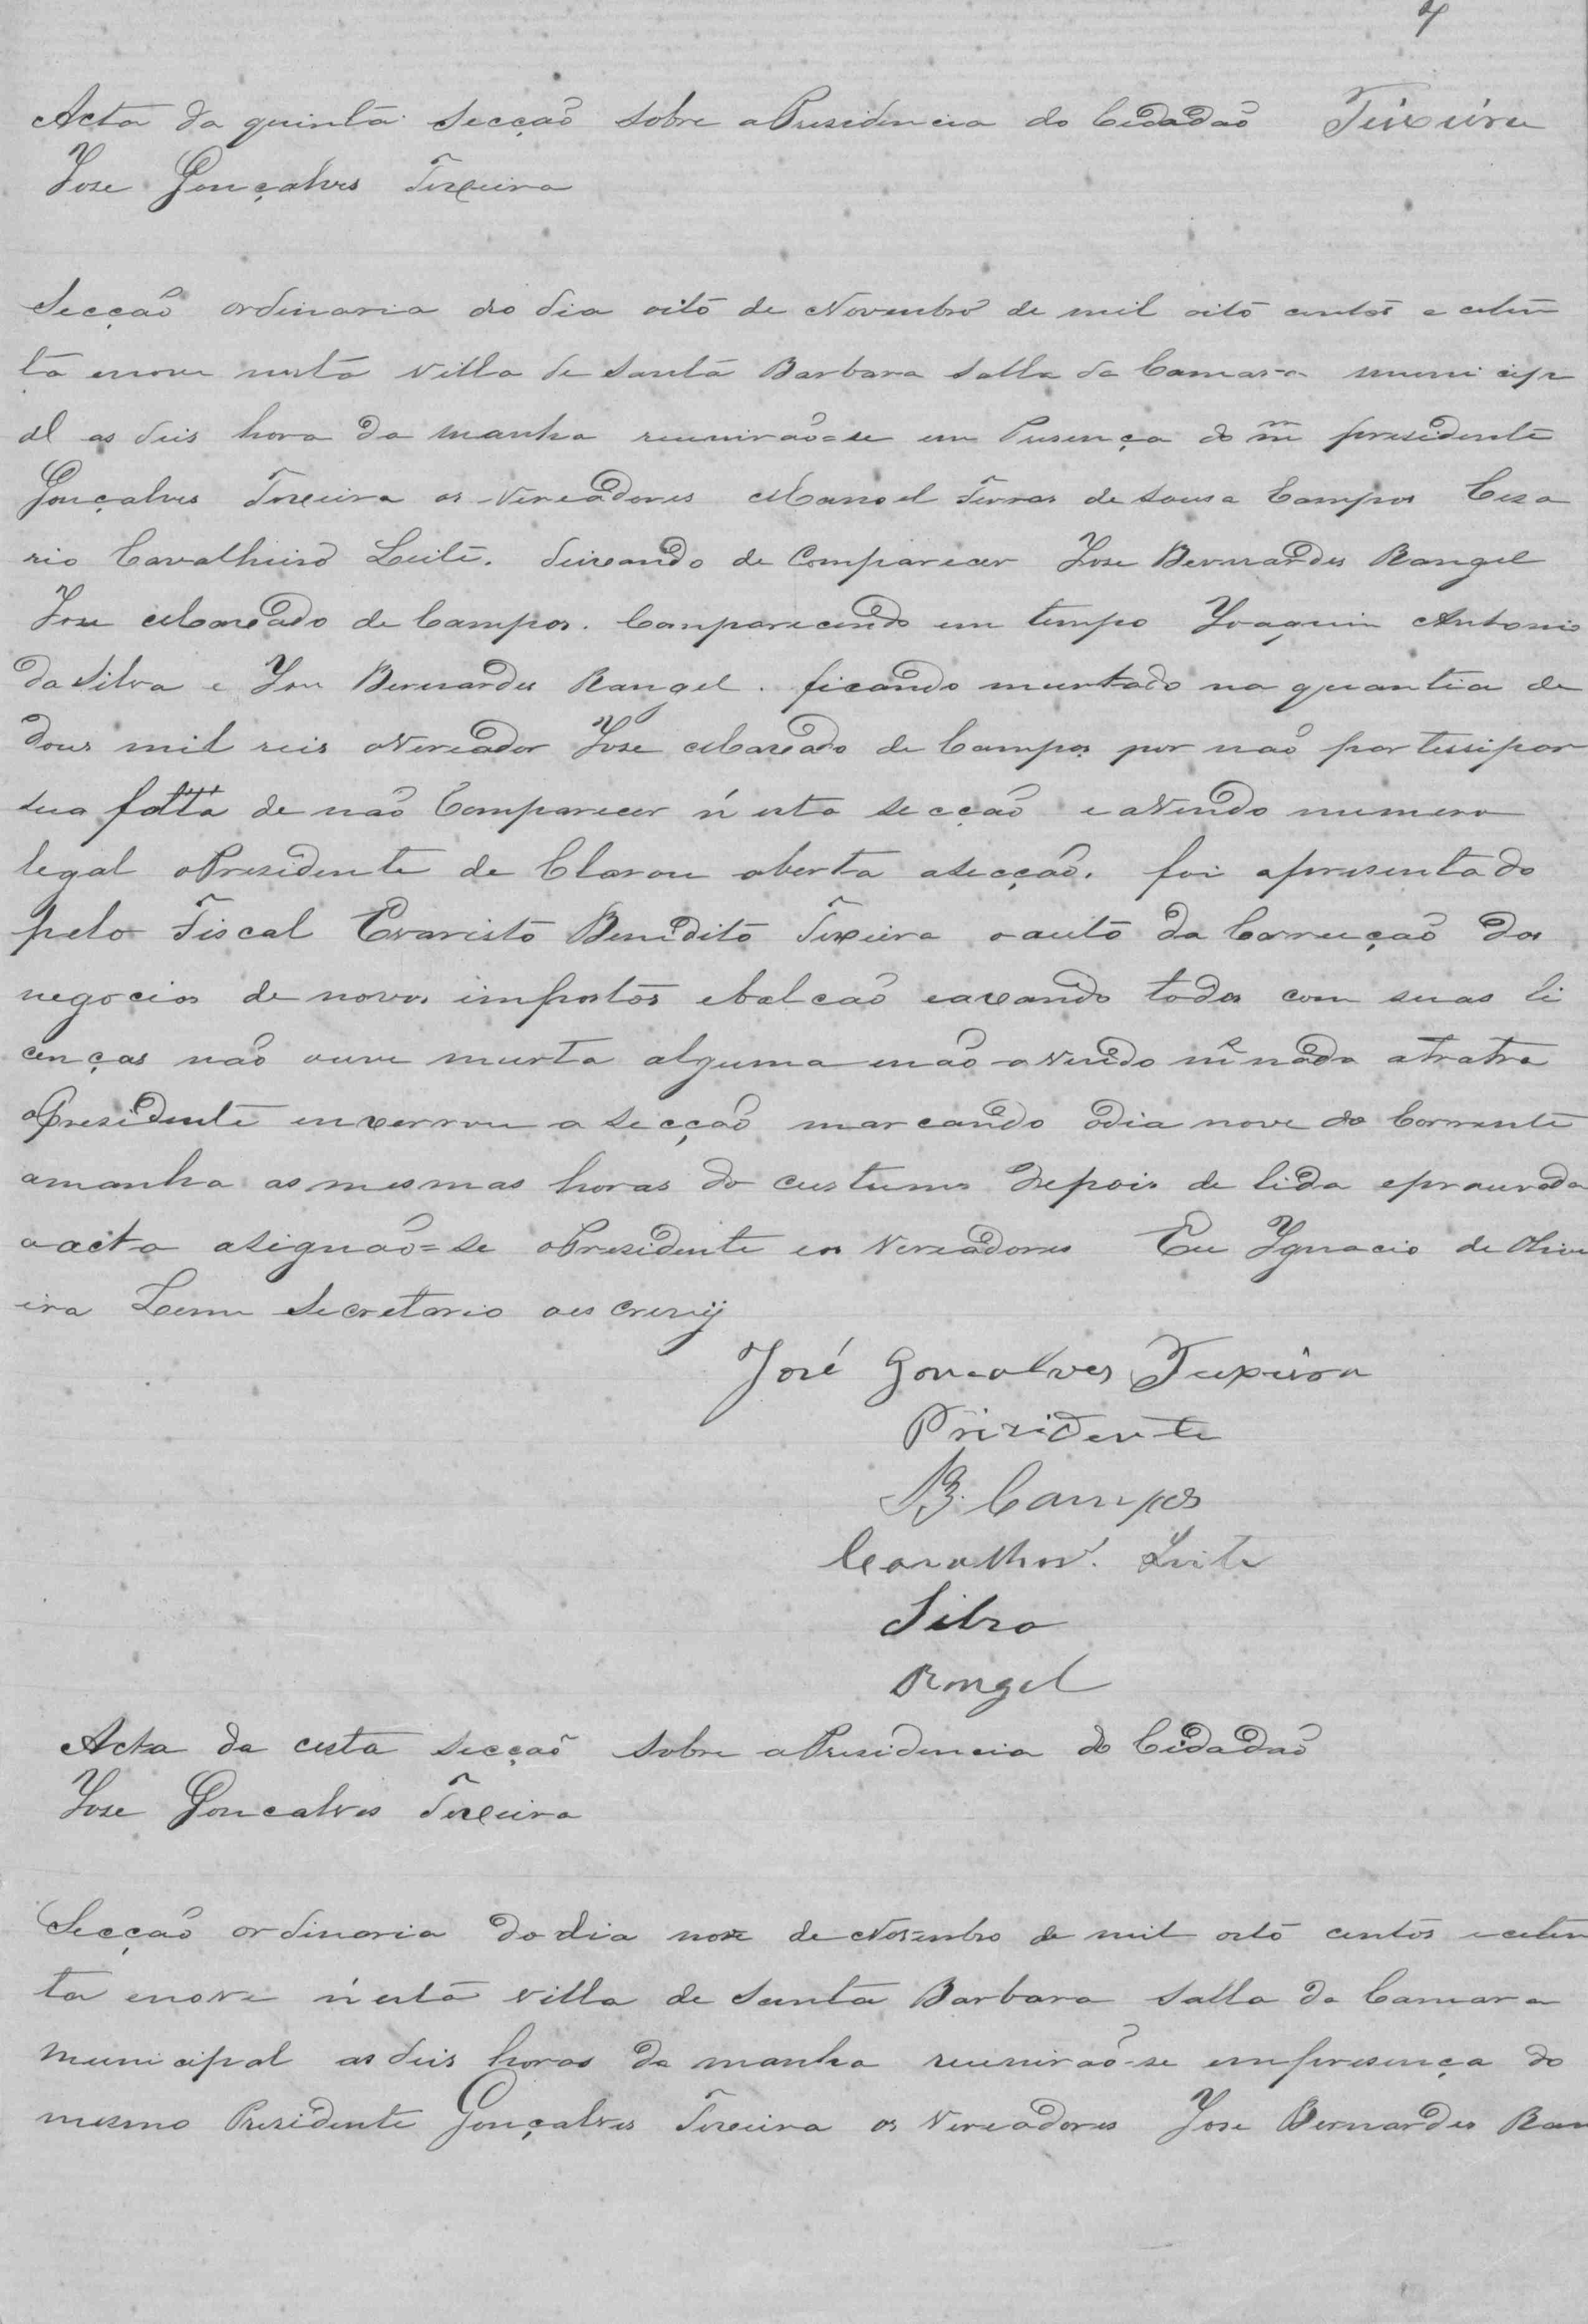 7
Acta da quinta Secção Sobre aPresidencia do Cidadaõ Teixeira
Jose Gonçalves Texeira
Secção ordinaria do dia oito de Novembro de mil oito centos e ceten
ta enove nesta Villa de Santa Barbara Salla da Camara municip
al as deis hora da manha reunirão=se em Presença do mm presidente
Gonçalves Texeira os Vereadores Manoel Ferras de Sousa Campos Ceza
rio Cavalheiro Leite. deixando de Comparecer Jose Bernardes Rangel
Jose Maxado de Campos. Comparecendo em tempo Joaquim Antonio
da Silva e Jose Bernardes Rangel. ficando murtado na quantia de
dous mil reis oVereador Jose Maxado de Campos por naõ partissipar
sua fatta de naõ Comparecer n'esta secção e avendo numero
legal oPresidente de Clarou aberta asecção. foi apresentado
pelo Fiscal Evaristo Benidito Texeira o auto da Correição dos
negocios de novos impostos ebalcaõ eaxando todos com suas li
cenças naõ ouve murta alguma enaõ avendo mais nada atratra
oPresidente enxerrou a secção marcando odia nove do Corrente
amanha as mesmas horas do custume depois de lida eprouvada
a acta asignaõ=se oPresidente eos Vereadores Eu Ygnacio de Olive
eira Leme Secretario oescrevij
José Gonçalves Teixeira
Prizidente
B. Campos
Cavalhrº. Leite
Silva
Rangel
Acta da cesta secçaõ Sobre aPresidencia do Cidadaõ
Jose Goncalves Texeira
Secção ordinaria do dia nove de Novembro de mil oito centos e ceten
ta enove n'esta villa de Santa Barbara Salla da Camara
municipal as deis horas da manha reuniraõ-se empresença do
mesmo Presidente Gonçalves Texeira os Vereadores Jose Bernardes Ran